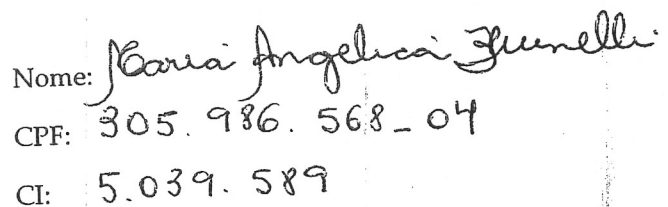 Nome: Maria Angelica Zrunelli
CPF: 305.986.568-04
CI: 5.039.589